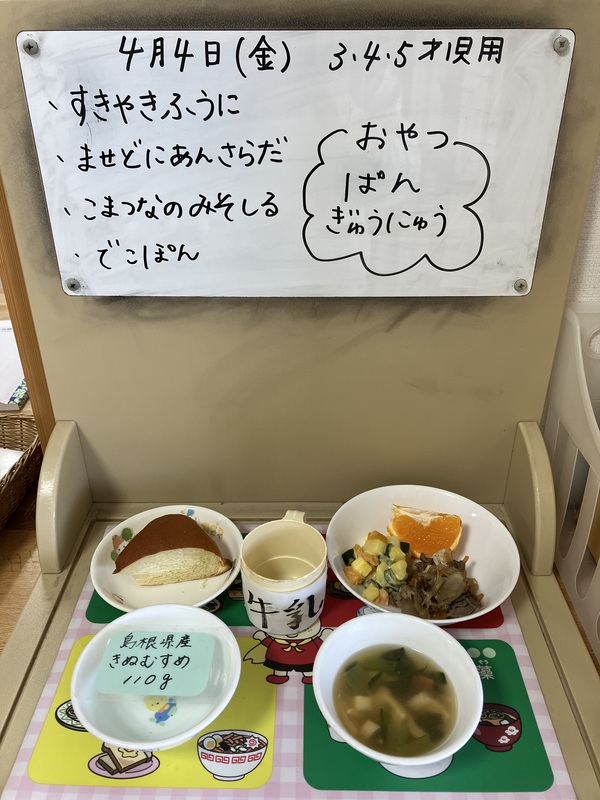 4月4日(金) 3.4.5才児用
、すきやきふうに
、ませどにあんさらだ
、こまつなのみそしる
、でこぽん
おやつ
ぱん
ぎゅうにゅう
牛乳
島根県産
きぬむすめ
110g